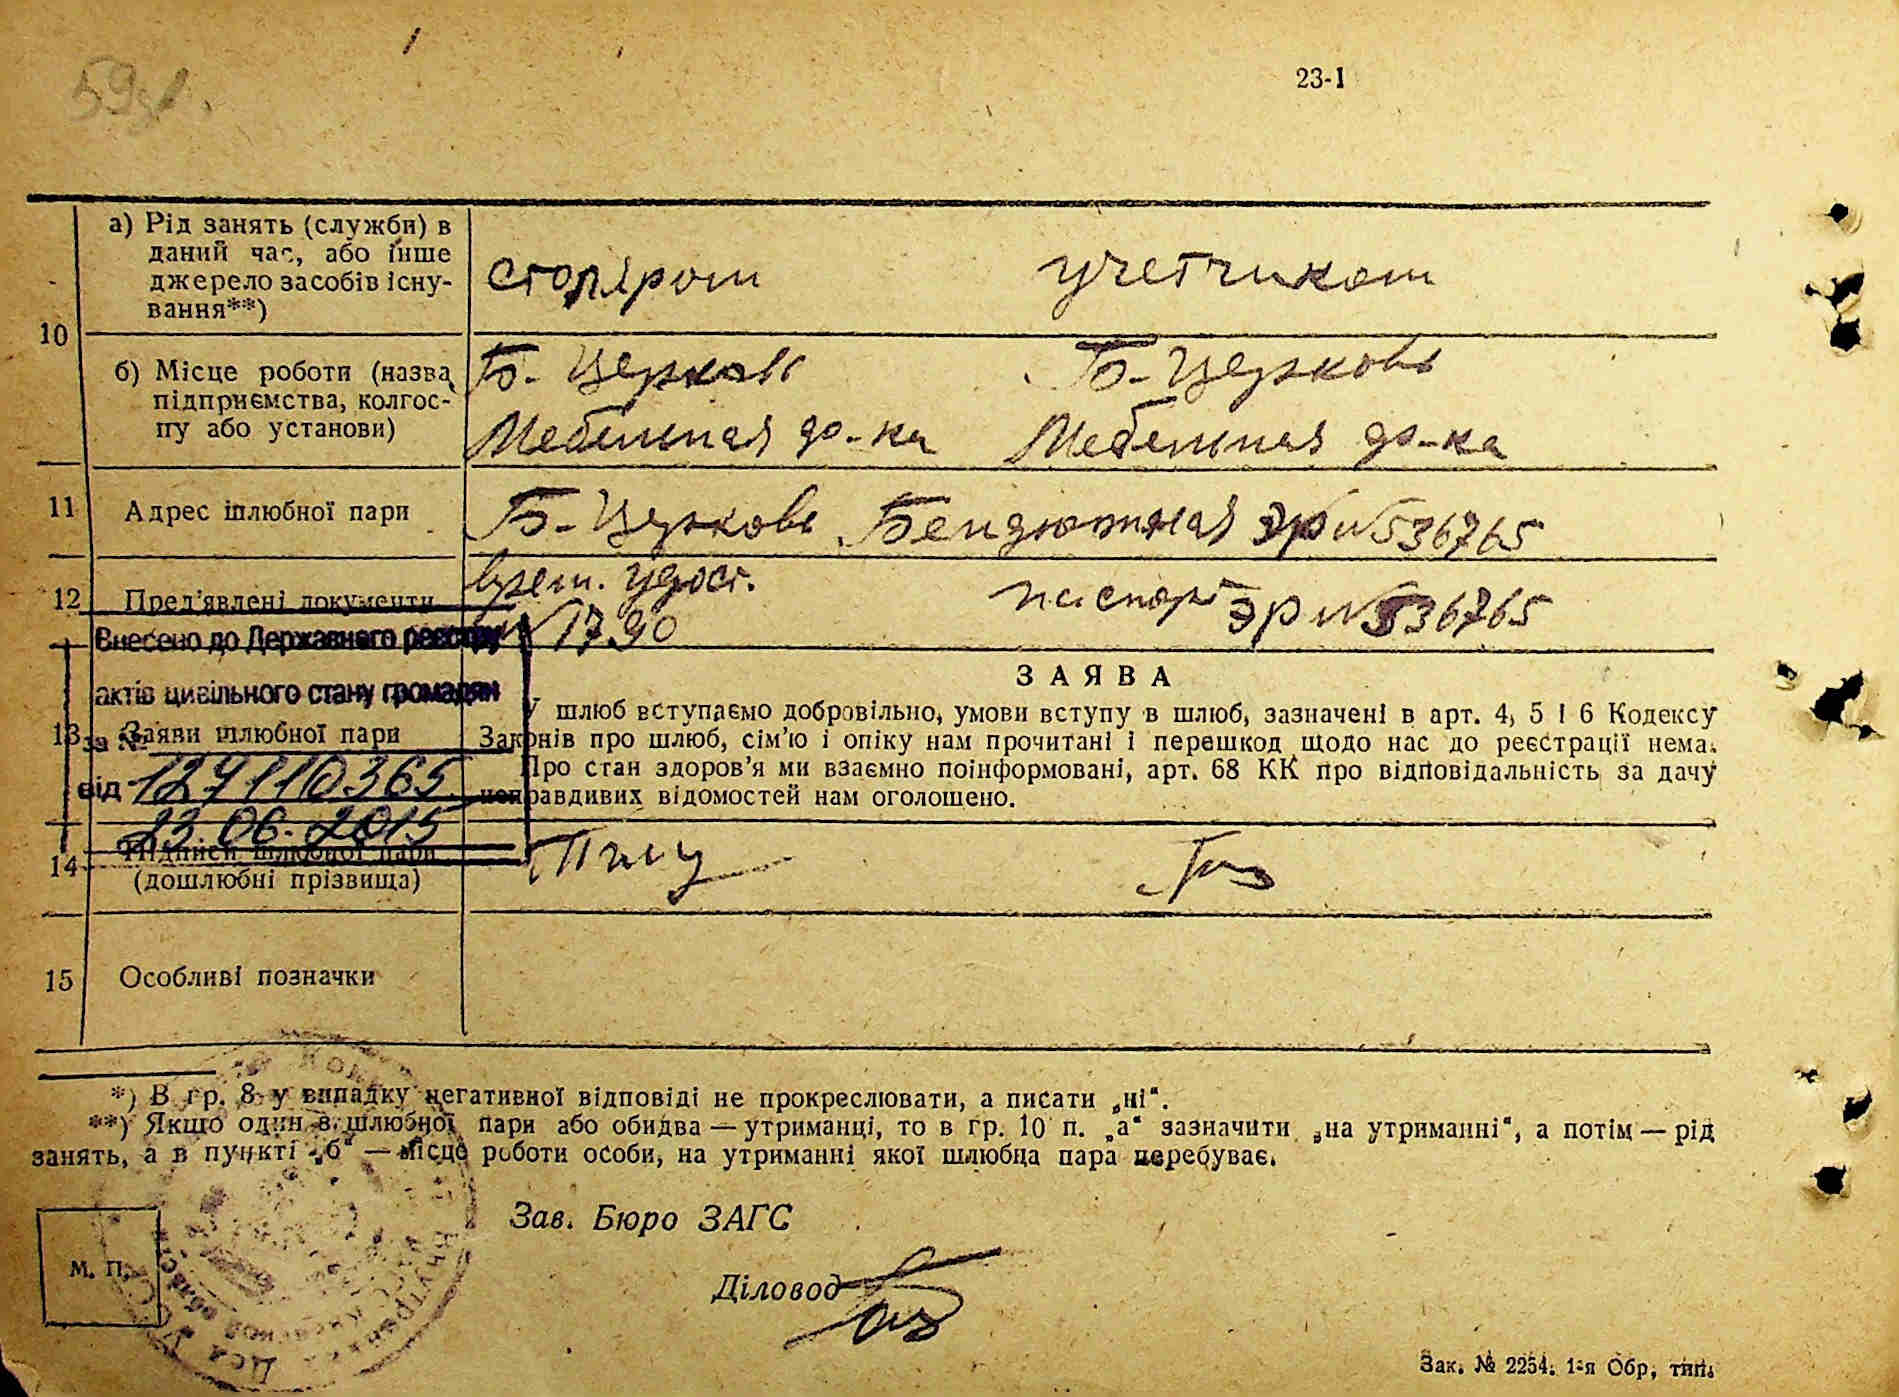 59
23-1
10
а) Рід занять (служби) в
даний час, або інше
джерело засобів існу-
вання**)
столяром учетчиком
б) Місце роботи (назва
підприємства, колгос-
пу або установи)
Б-Церковь Б-Церковь
Мебельная ф-ка Мебельная ф-ка
11 Адрес шлюбної пари
Б-Церковь
12 Пред'явлені документи
врем. удост.
№ 1790
паспорт ЭР № 536765
Внесено до Державного реєстру
актів цивільного стану громадян
за №
від 12 7110365
23.06.2015
13 Заяви шлюбної пари
ЗАЯВА
У шлюб вступаємо добровільно, умови вступу в шлюб, зазначені в арт. 4, 5 і 6 Кодексу
Законів про шлюб, сім'ю і опіку нам прочитані і перешкод щодо нас до реєстрації нема.
Про стан здоров'я ми взаємно поінформовані, арт. 68 КК про відповідальність за дачу
неправдивих відомостей нам оголошено.
14 Підписи шлюбної пари
(дошлюбні прізвища)
15 Особливі позначки
*) В гр. 8 у випадку негативної відповіді не прокреслювати, а писати „ні“.
**) Якщо один з шлюбної пари або обидва — утриманці, то в гр. 10 п. „а“ зазначити „на утриманні“, а потім — рід
занять, а в пункті „б“ — місце роботи особи, на утриманні якої шлюбна пара перебуває.
Зав. Бюро ЗАГС
М. П.
Діловод
Зак. № 2254. 1-я Обр. тип.